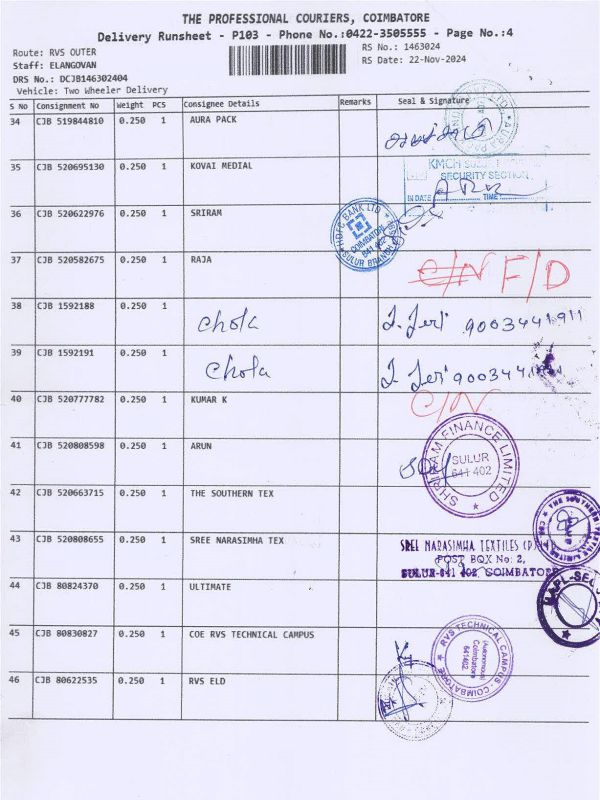 THE PROFESSIONAL COURIERS, COIMBATORE
Delivery Runsheet - P103 - Phone No.:0422-3505555 - Page No.:4
Route: RVS OUTER
RS No.: 1463024
Staff: ELANGOVAN
RS Date: 22-Nov-2024
DRS No.: DCJB146302404
Vehicle: Two Wheeler Delivery
S No Consignment No Weight PCS Consignee Details Remarks Seal & Signature
34 CJB 519844810 0.250 1 AURA PACK
35 CJB 520695130 0.250 1 KOVAI MEDIAL
KMCH SULUR
SECURITY SECTION
IN DATE TIME
36 CJB 520622976 0.250 1 SRIRAM
HDFC BANK LTD
COIMBATORE
641 402
SULUR BRANCH
37 CJB 520582675 0.250 1 RAJA C/N F/D
38 CJB 1592188 0.250 1 Chola 9003441911
39 CJB 1592191 0.250 1 Chola
40 CJB 520777782 0.250 1 KUMAR K C/N
41 CJB 520808598 0.250 1 ARUN
SHRIRAM FINANCE LIMITED
SULUR
641 402
42 CJB 520663715 0.250 1 THE SOUTHERN TEX
43 CJB 520808655 0.250 1 SREE NARASIMHA TEX
SREE NARASIMHA TEXTILES (P)
POST BOX No: 2,
SULUR-641 402, COIMBATORE
44 CJB 80824370 0.250 1 ULTIMATE
45 CJB 80830827 0.250 1 COE RVS TECHNICAL CAMPUS
RVS TECHNICAL CAMPUS - COIMBATORE
(Autonomous)
Coimbatore
641402
46 CJB 80622535 0.250 1 RVS ELD